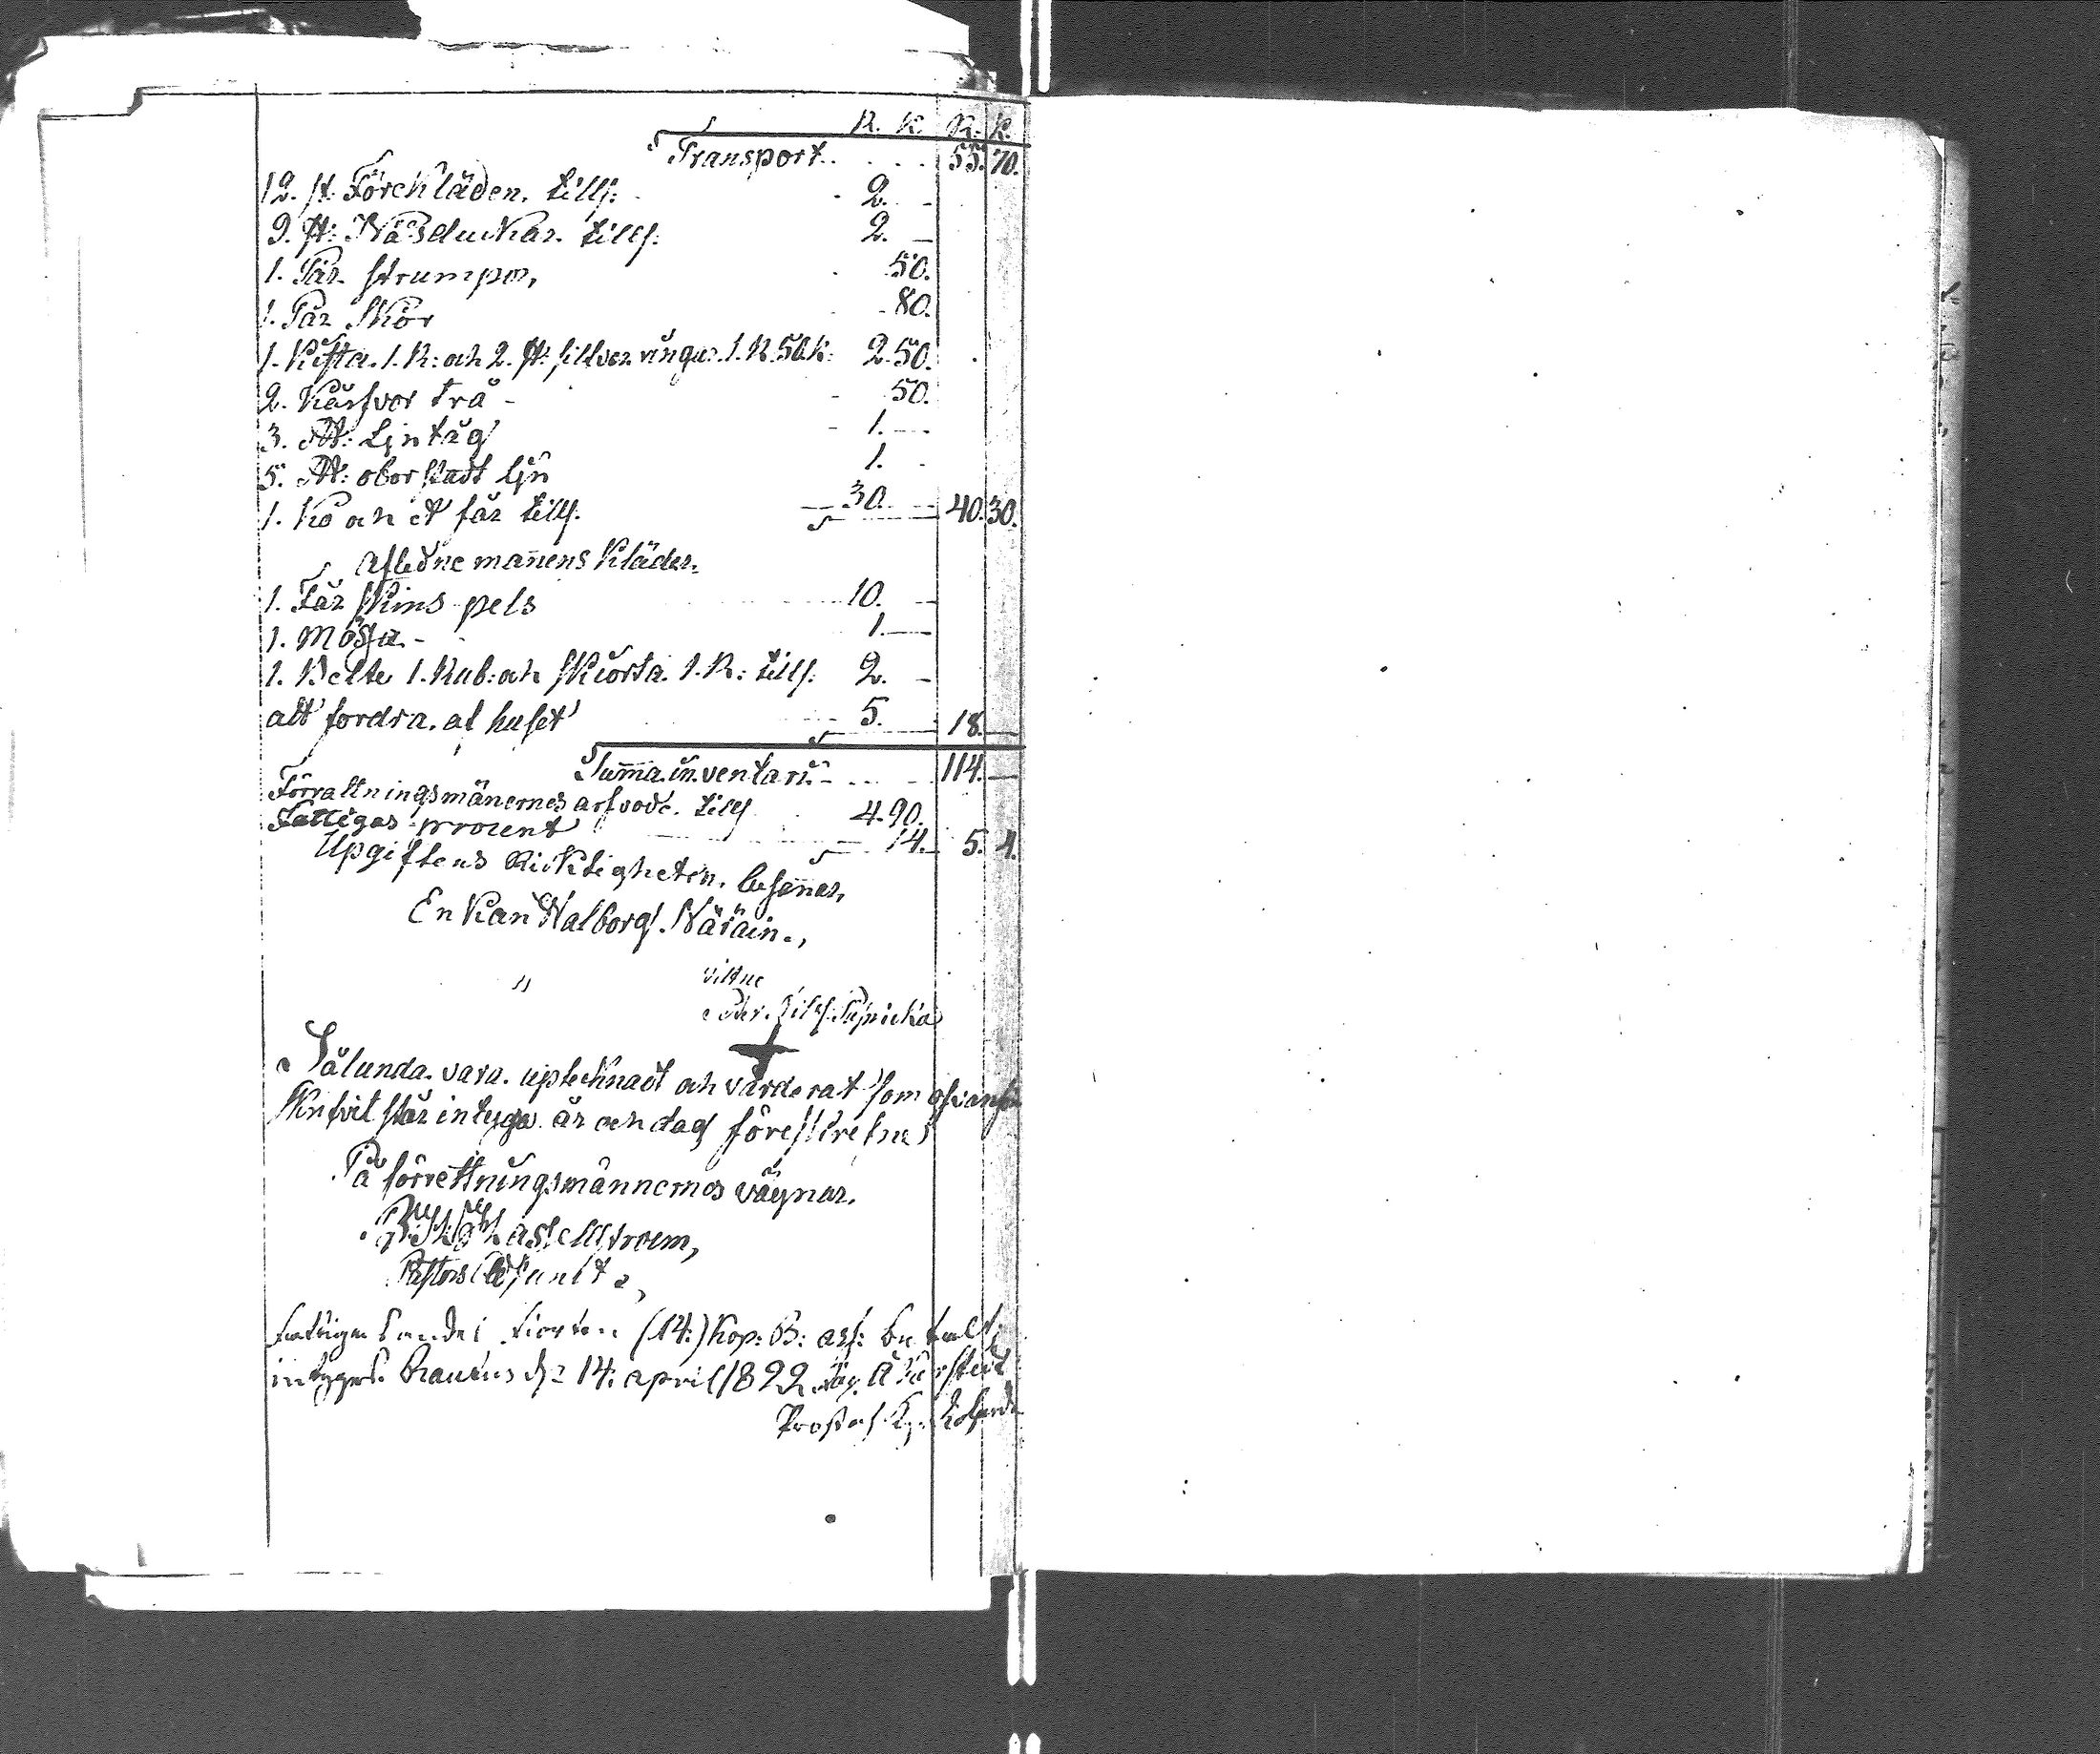 R. K. R. K.
Transport. . . . . 55. 70.
12. st: Förckläden. tills: - - 2. -
9. st: Näsduckar. tills: 2. -
1. Par strumpor, - 50.
1. Par skor - 80.
1. Kista. 1. R: och 2. st: silfver ringar. 1. R. 50. k: 2. 50.
2. Kärfvor trä - - 50.
3. st: Lintåg - 1. -
5. st: oborstadt lin 1. -
1. Ko och et får tills. 30. - 40. 30.
Afledne manens kläder.
1. Får skins pels 10. -
1. Mössa - 1. -
1. Belte 1. Rub: och skiorta. 1. R: tills: 2. -
att fordra. af huset 5. - 18. -
Suma inventarii - - 114. -
Förrattningsmänernes arfvode. tills 4. 90.
Fattigas procent - 14. 5. 4.
Upgiftens Ricktigheten.
Enkan Walborg.
vittne
Sålunda. vara. uptecknadt och värderat som ofvanför
skrifvit står intyga år och dag föreskrefne
På förrettningsmännernes vägnar.
Pastors Adjunct
fierton (14:) Kop: B: ass: betalt,
intygas. Rautus d: 14: april 1822.